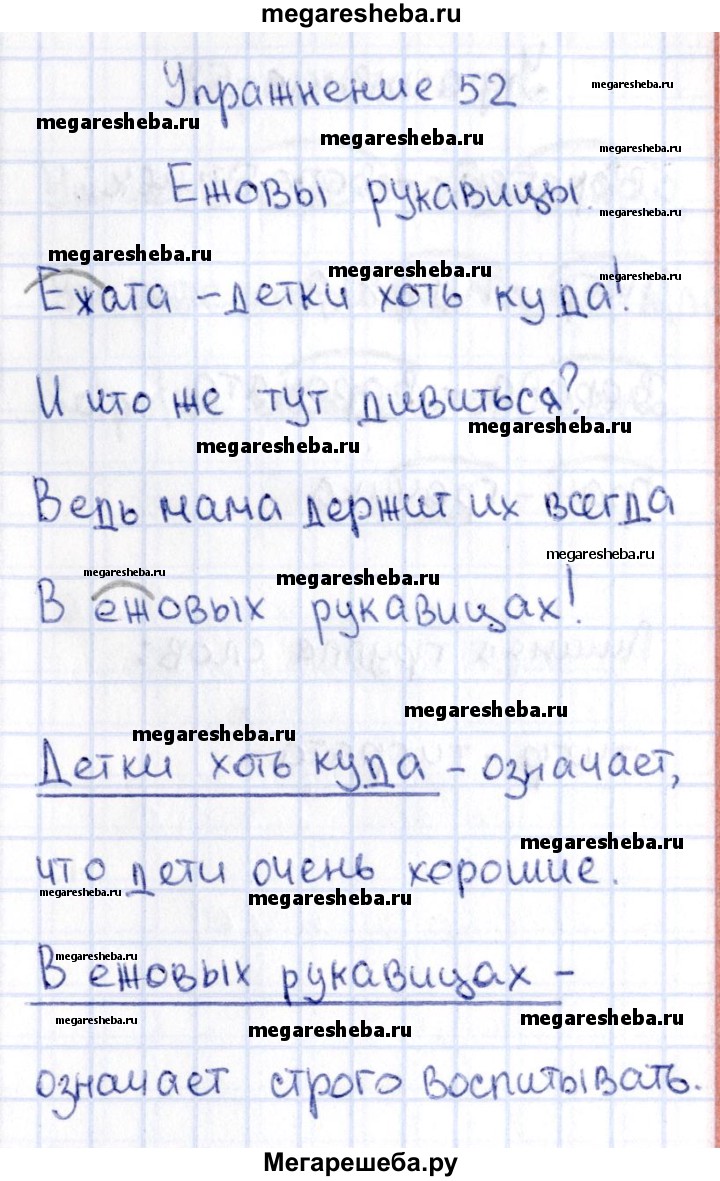 megaresheba.ru
Упражнение 52
megaresheba.ru
megaresheba.ru
megaresheba.ru
Ежовы рукавицы.
megaresheba.ru
megaresheba.ru
megaresheba.ru
megaresheba.ru
megaresheba.ru
Ежата – детки хоть куда!
И что же тут дивиться?
megaresheba.ru
megaresheba.ru
Ведь мама держит их всегда
megaresheba.ru
megaresheba.ru
megaresheba.ru
В ежовых рукавицах!
megaresheba.ru
megaresheba.ru
Детки хоть куда – означает,
megaresheba.ru
что дети очень хорошие.
megaresheba.ru
megaresheba.ru
megaresheba.ru
В ежовых рукавицах –
megaresheba.ru
megaresheba.ru
megaresheba.ru
означает строго воспитывать.
Мегарешеба.ру